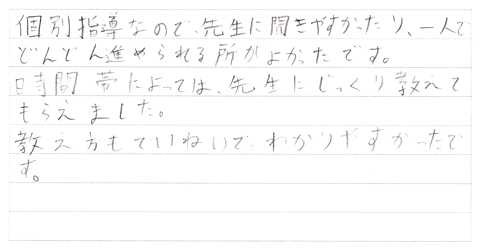 個別指導なので、先生に聞きやすかったり、一人で
どんどん進められる所がよかったです。
時間帯によっては、先生にじっくり教えて
もらえました。
教え方もていねいで、わかりやすかったで
す。